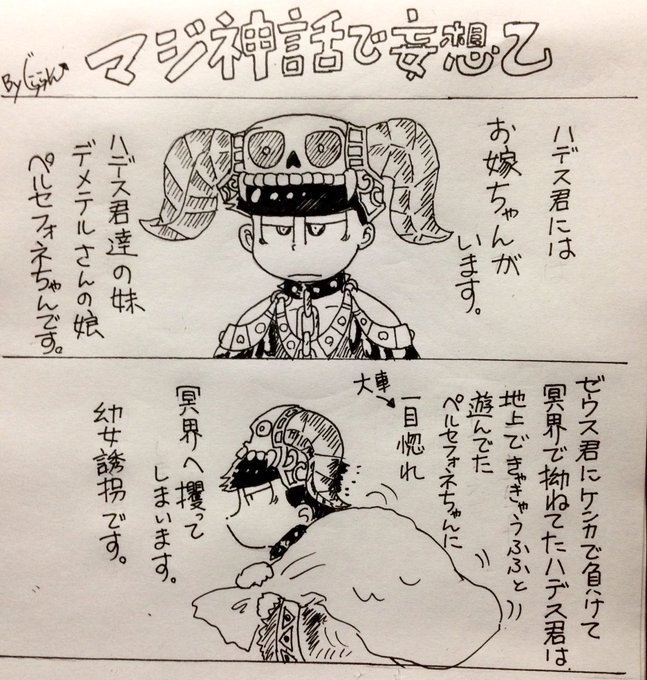 マジ神話で妄想乙
By
ハデス君には
お嫁ちゃんが
います。
ハデス君達の妹
デメテルさんの娘
ペルセフォネちゃんです。
ゼウス君にケンカで負けて
冥界で拗ねてたハデス君は
地上できゃきゃうふふと
遊んでた
ペルセフォネちゃんに
一目惚れ
大車
冥界へ攫って
しまいます。
幼女誘拐です。